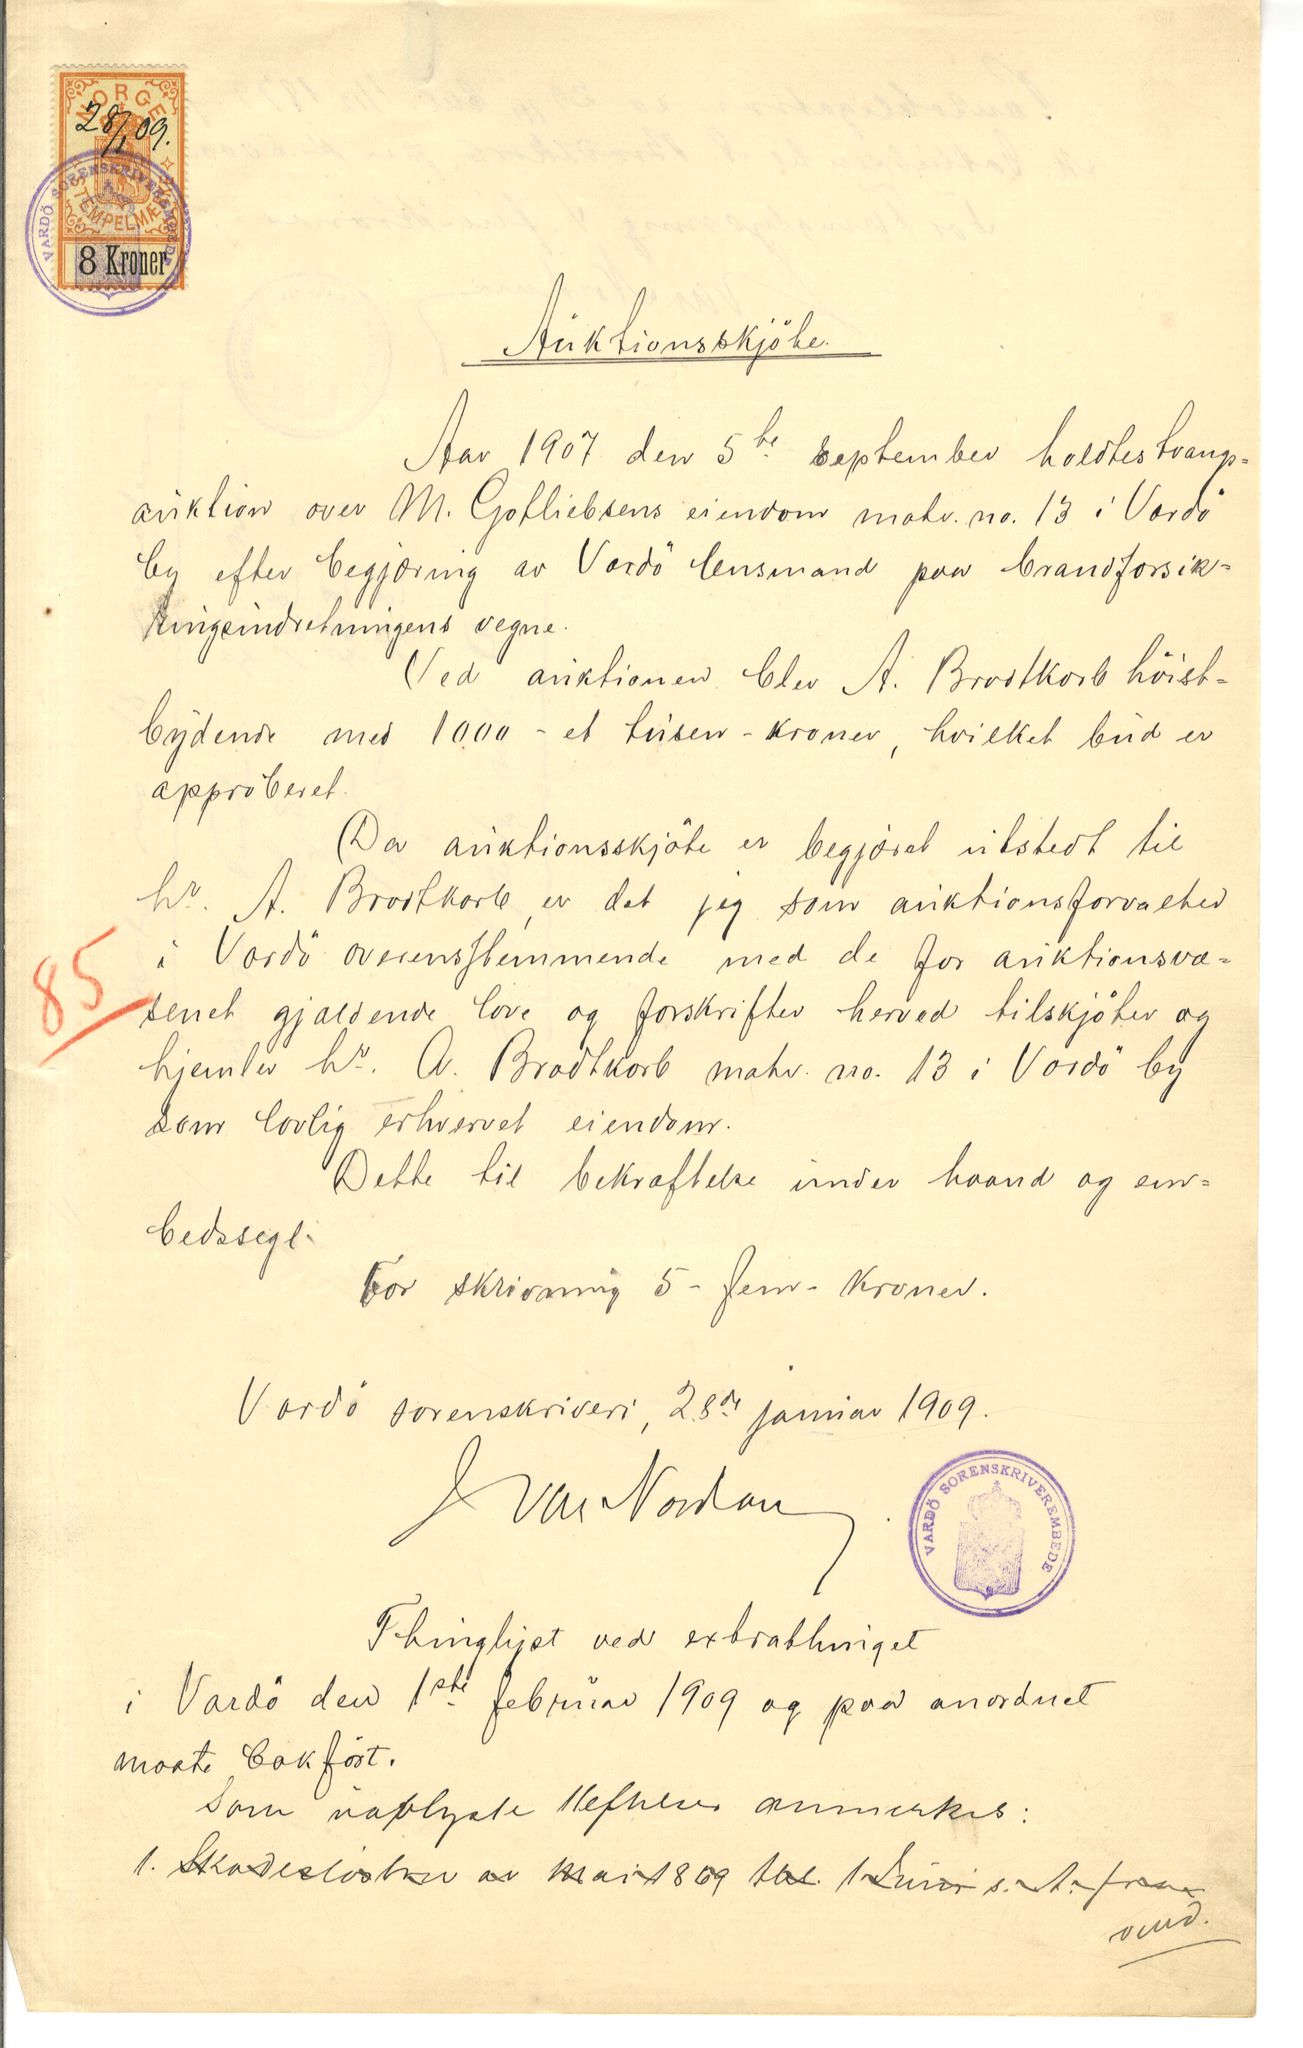 NORGE
28/1 09.
STEMPELMÆRKE
8 Kroner
VARDÖ SORENSKRIVEREMBEDE
Auktionsskjöte.
Aar 1907 den 5te september holdtes tvangs-
auktion over M. Gotliebsens eiendom matr. no. 13 i Vardö
by efter begjæring av Vardö lensmand paa brandforsik-
ringsindretningens vegne.
Ved auktionen blev A. Brodtkorb höist-
bydende med 1000 - et tusen - kroner, hvilket bud er
approberet.
Da auktionsskjöte er begjæret utstedt til
hr. A. Brodtkorb, er det jeg som auktionsforvalter
i Vardö overensstemmende med de for auktionsvæ-
senet gjældende love og forskrifter herved tilskjöter og
hjemler hr. A. Brodtkorb matr. no. 13 i Vardö by
som lovlig erhvervet eiendom.
Dette til bekræftelse under haand og em-
bedssegl.
For skrivning 5 - fem - kroner.
85
Vardö sorenskriveri, 28de januar 1909.
VARDÖ SORENSKRIVEREMBEDE
Thinglyst ved extrathinget
i Vardö den 1ste februar 1909 og paa anordnet
maate bokfört.
Som uavlyste heftelser anmerkes:
1. Skadeslösbrev av mai 1869 thl. 1 Juni s. A. fra
vend.